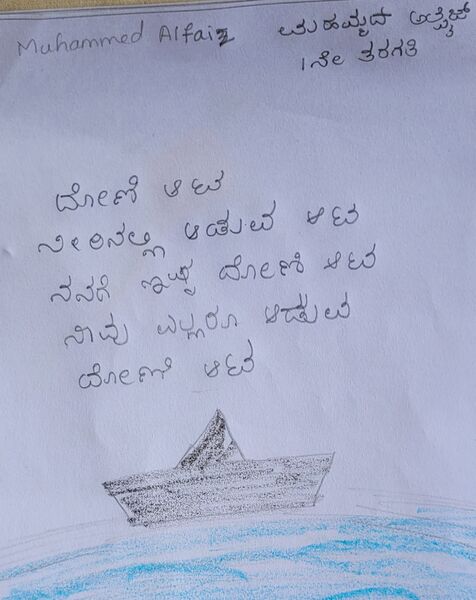 Muhammed Alfaiz
ಮಹಮ್ಮದ್ ಅಲ್ಫೈಜ್
1ನೇ ತರಗತಿ
ದೋಣಿ ಆಟ
ನೀರಿನಲ್ಲಿ ಆಡುವ ಆಟ
ನನಗೆ ಇಷ್ಟ ದೋಣಿ ಆಟ
ನಾವು ಎಲ್ಲರೂ ಆಡುವ
ದೋಣಿ ಆಟ